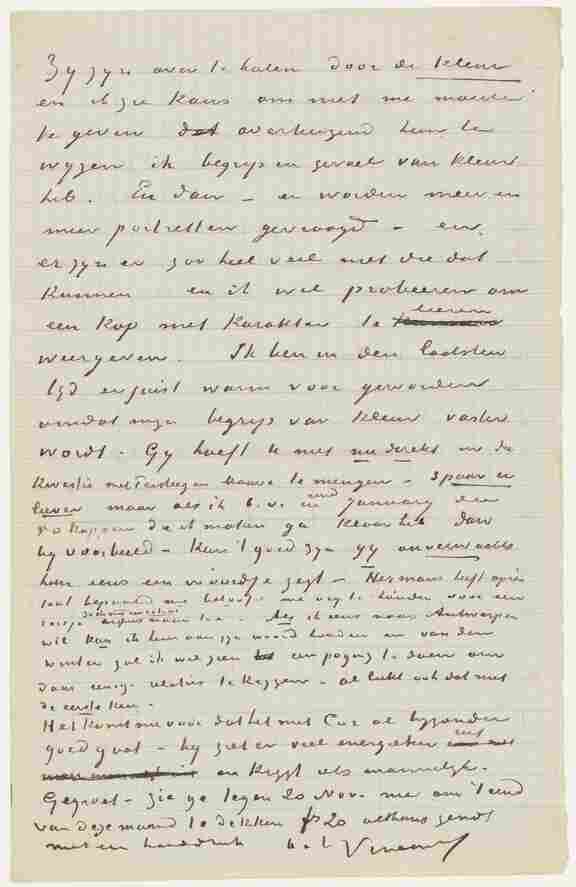 Zy zyn over te halen door de kleur
en ik zie kans om met me moeite
te geven dat overtuigend hen te
wyzen ik begrip en gevoel van kleur
heb. En dan – er worden meer en
meer portretten gevraagd – en,
er zyn er zoo heel veel niet die dat
kunnen en ik wil probeeren om
een kop met karakter te leeren
weergeven. Ik ben in den laatsten
tyd er juist warm voor geworden
omdat myn begrip van kleur vaster
wordt. Gy hoeft U niet nu direkt in de
kwestie met Tersteeg te mengen – spaar er
liever maar als ik b.v. eind January een
50 koppen die ik maken ga klaar heb dan
by voorbeeld – kan 't goed zyn gy onverwachts
hem eens een woordje zegt – Hermans heeft

reisje
wil kan ik hem aan zyn woord houden en van den
winter zal ik wel zien een poging te doen om
daar eenige relaties te krygen – al lukt ook dat niet
de eerste keer.
Het komt me voor dat het met Cor al byzonder
goed gaat – hy ziet er veel energieker uit
en krygt iets mannelyks.
Gegroet – zie ge tegen 20 Nov. me om 't eind
van deze maand te dekken 20 althans zendt
met een handdruk t.à t. Vincent